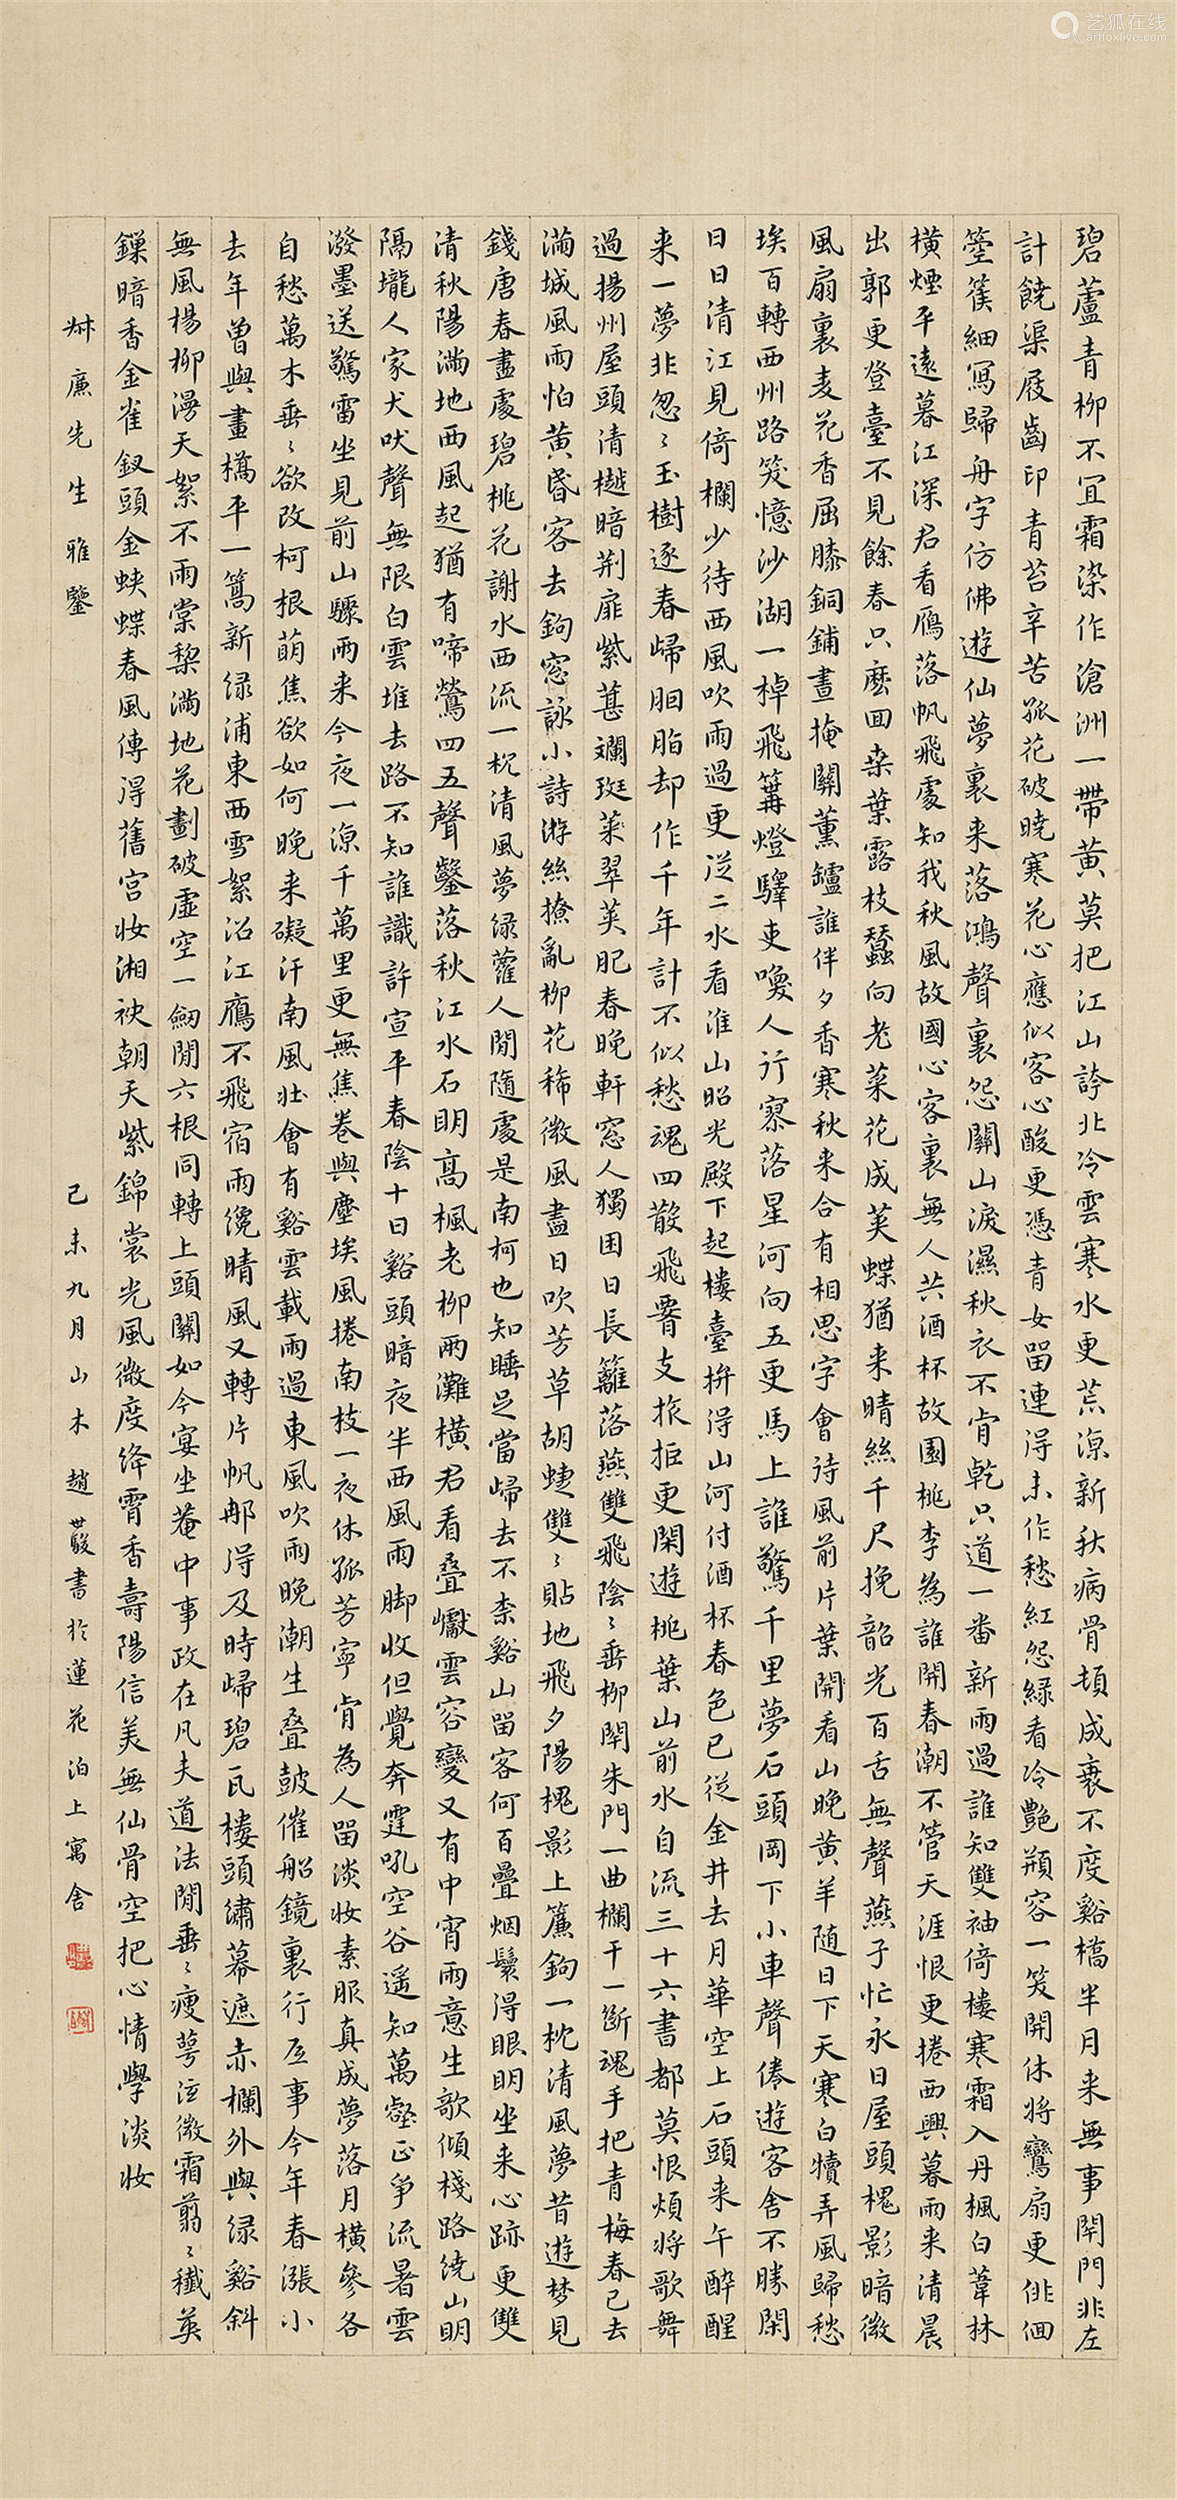 碧蘆青柳不宜霜染作滄洲一帶黃莫把江山誇北冷雲寒水更荒涼新秋病骨頓成衰不度谿橋半月来無事閉門非左
計饒渠屐齒印青苔辛苦孤花破曉寒花心應似客心酸更憑青女留連得未作愁紅怨綠看冷艶瓶容一笑開休將鸞扇更俳徊
箜篌細寫歸舟字仿佛遊仙夢裏来落鴻聲裏怨關山淚濕秋衣不肯乾只道一番新雨過誰知雙袖倚樓寒霜入丹楓白葦林
橫煙平遠暮江深君看雁落帆飛處知我秋風故國心客裏無人共酒杯故園桃李為誰開春潮不管天涯恨更捲西興暮雨来清晨
出郭更登臺不見餘春只麽回桒葉露枝蠶向老菜花成莢蝶猶来晴絲千尺挽韶光百舌無聲燕子忙永日屋頭槐影暗微
風扇裏麦花香屈膝銅鋪晝掩關薰鑪誰伴夕香寒秋来合有相思字會待風前片葉開看山晚黃羊随日下天寒白犢弄風歸愁
埃百轉西州路笑憶沙湖一棹飛篝燈驛吏喚人行寥落星河向五更馬上誰驚千里夢石頭岡下小車聲倦遊客舍不勝閑
日日清江見倚欄少待西風吹雨過更從二水看淮山昭光殿下起樓臺拚得山河付酒杯春色已從金井去月華空上石頭来午醉醒
来一夢非忽〻玉樹逐春歸胭脂却作千年計不似愁魂四散飛瘦支旅拒更閑遊桃葉山前水自流三十六書都莫恨煩將歌舞
過揚州屋頭清樾暗荆扉紫葚斕斑萊翠莢肥春晚軒窓人獨困日長籬落燕雙飛陰〻垂柳閉朱門一曲欄干一斷魂手把青梅春已去
滿城風雨怕黃昏客去鉤窓詠小詩游絲撩亂柳花稀微風盡日吹芳草胡蜨雙〻貼地飛夕陽槐影上簾鉤一枕清風夢昔遊梦見
錢唐春盡處碧桃花謝水西流一枕清風夢綠蘿人閒隨處是南柯也知睡足當歸去不柰谿山留客何百疊烟鬟得眼明坐来心跡更雙
清秋陽滿地西風起猶有啼鶯四五聲鑿落秋江水石明高楓老柳兩灘橫君看疊巘雲容變又有中宵雨意生歌傾棧路繞山明
隔壠人家犬吠聲無限白雲堆去路不知誰識許宣平春陰十日谿頭暗夜半西風雨脚收但覺奔霆吼空谷遥知萬壑正爭流暑雲
潑墨送驚雷坐見前山驟雨来今夜一涼千萬里更無焦卷與塵埃風捲南枝一夜休孤芳寧肯為人留淡妝素服真成夢落月橫參各
自愁萬木垂〻欲改柯根萌焦欲如何晚来礙汗南風壯會有谿雲載雨過東風吹雨晚潮生疊鼓催船鏡裏行底事今年春漲小
去年曾與畫橋平一篙新綠浦東西雪絮沿江鴈不飛宿雨纔晴風又轉片帆那得及時歸碧瓦樓頭繡幕遮赤欄外與綠谿斜
無風楊柳漫天絮不雨棠棃滿地花劃破虛空一劒閒六根同轉上頭關如今宴坐菴中事政在凡夫道法閒垂〻瘦萼泫微霜剪〻纖英
鏁暗香金雀釵頭金蛺蝶春風傳得舊宮妝湘袂朝天紫錦裳光風微度絳霄香壽陽信美無仙骨空把心情學淡妝
廉先生雅鑒
己未九月山木趙世駿書於蓮花泊上寓舍
艺狐在线
artfoxlive.com